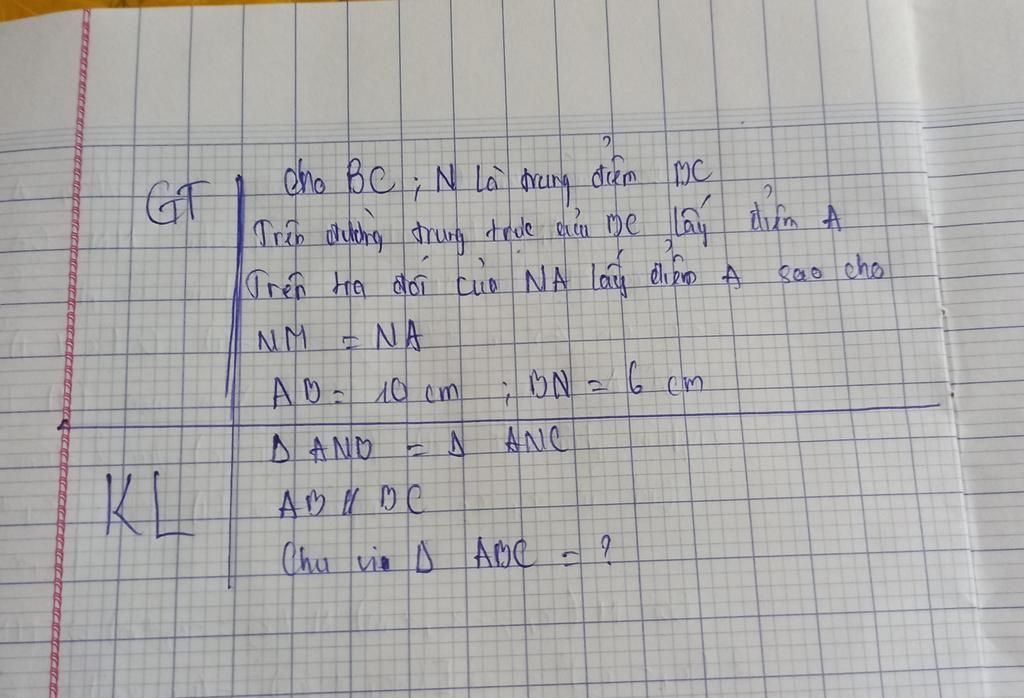 GT
Cho BC ; N là trung điểm BC
Trên đường trung trực của BC lấy điểm A
Trên tia đối của NA lấy điểm A sao cho
NM = NA
AB = 10 cm ; BN = 6 cm
KL
Δ ANB = Δ ANC
AB // BC
Chu vi Δ ABC = ?